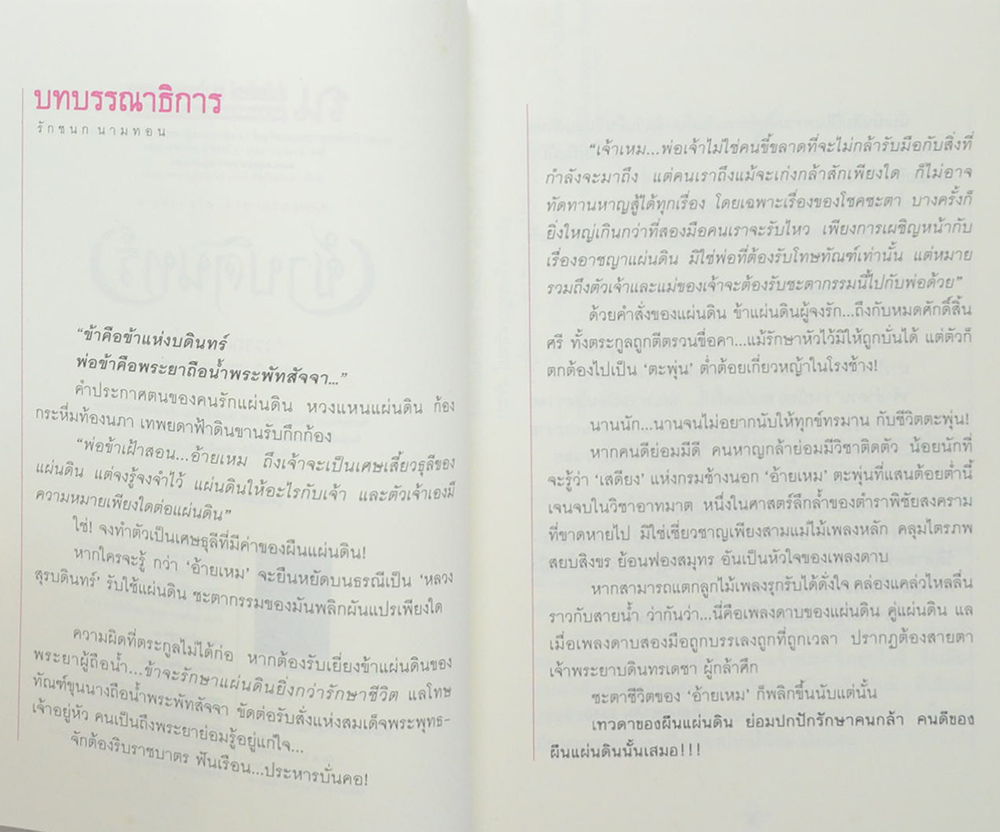 บทบรรณาธิการ
รักชนก นามทอน
“ข้าคือข้าแห่งบดินทร์
พ่อข้าคือพระยาถือน้ำพระพัทสัจจา...”
คำประกาศตนของคนรักแผ่นดิน หวงแหนแผ่นดิน ก้อง
กระหึ่มท้องนภา เทพยดาฟ้าดินขานรับกึกก้อง
“พ่อข้าเฝ้าสอน...อ้ายเหม ถึงเจ้าจะเป็นเศษเสี้ยวธุลีของ
แผ่นดิน แต่จงรู้จงจำไว้ แผ่นดินให้อะไรกับเจ้า และตัวเจ้าเองมี
ความหมายเพียงใดต่อแผ่นดิน”
ใช่! จงทำตัวเป็นเศษธุลีที่มีค่าของผืนแผ่นดิน!
หากใครจะรู้ กว่า ‘อ้ายเหม’ จะยืนหยัดบนธรณีเป็น ‘หลวง
สุรบดินทร์’ รับใช้แผ่นดิน ชะตากรรมของมันพลิกผันแปรเพียงใด
ความผิดที่ตระกูลไม่ได้ก่อ หากต้องรับเยี่ยงข้าแผ่นดินของ
พระยาผู้ถือน้ำ...ข้าจะรักษาแผ่นดินยิ่งกว่ารักษาชีวิต แลโทษ
ทัณฑ์ขุนนางถือน้ำพระพัทสัจจา ขัดต่อรับสั่งแห่งสมเด็จพระพุทธ-
เจ้าอยู่หัว คนเป็นถึงพระยาย่อมรู้อยู่แก่ใจ...
จักต้องริบราชบาตร ฟันเรือน...ประหารบั่นคอ!
“เจ้าเหม...พ่อเจ้าไม่ใช่คนขี้ขลาดที่จะไม่กล้ารับมือกับสิ่งที่
กำลังจะมาถึง แต่คนเราถึงแม้จะเก่งกล้าสักเพียงใด ก็ไม่อาจ
ทัดทานหาญสู้ได้ทุกเรื่อง โดยเฉพาะเรื่องของโชคชะตา บางครั้งก็
ยิ่งใหญ่เกินกว่าที่สองมือคนเราจะรับไหว เพียงการเผชิญหน้ากับ
เรื่องอาชญาแผ่นดิน มิใช่พ่อที่ต้องรับโทษทัณฑ์เท่านั้น แต่หมาย
รวมถึงตัวเจ้าและแม่ของเจ้าจะต้องรับชะตากรรมนี้ไปกับพ่อด้วย”
ด้วยคำสั่งของแผ่นดิน ข้าแผ่นดินผู้จงรัก...ถึงกับหมดศักดิ์สิ้น
ศรี ทั้งตระกูลถูกตีตรวนขื่อคา...แม้รักษาหัวไว้มิให้ถูกบั่นได้ แต่ตัวก็
ตกต้องไปเป็น ‘ตะพุ่น’ ต่ำต้อยเกี่ยวหญ้าในโรงช้าง!
นานนัก...นานจนไม่อยากนับให้ทุกข์ทรมาน กับชีวิตตะพุ่น!
หากคนดีย่อมมีดี คนหาญกล้าย่อมมีวิชาติดตัว น้อยนักที่
จะรู้ว่า ‘เสดียง’ แห่งกรมช้างนอก ‘อ้ายเหม’ ตะพุ่นที่แสนต้อยต่ำนี้
เจนจบในวิชาอาทมาต หนึ่งในศาสตร์ลึกล้ำของตำราพิชัยสงคราม
ที่ขาดหายไป มิใช่เชี่ยวชาญเพียงสามแม่ไม้เพลงหลัก คลุมไตรภพ
สยบสิงขร ย้อนฟองสมุทร อันเป็นหัวใจของเพลงดาบ
หากสามารถแตกลูกไม้เพลงรุกรับได้ดั่งใจ คล่องแคล่วไหลลื่น
ราวกับสายน้ำ ว่ากันว่า...นี่คือเพลงดาบของแผ่นดิน คู่แผ่นดิน แล
เมื่อเพลงดาบสองมือถูกบรรเลงถูกที่ถูกเวลา ปรากฏต้องสายตา
เจ้าพระยาบดินทรเดชา ผู้กล้าศึก
ชะตาชีวิตของ ‘อ้ายเหม’ ก็พลิกขึ้นนับแต่นั้น
เทวดาของผืนแผ่นดิน ย่อมปกปักรักษาคนกล้า คนดีของ
ผืนแผ่นดินนั้นเสมอ!!!